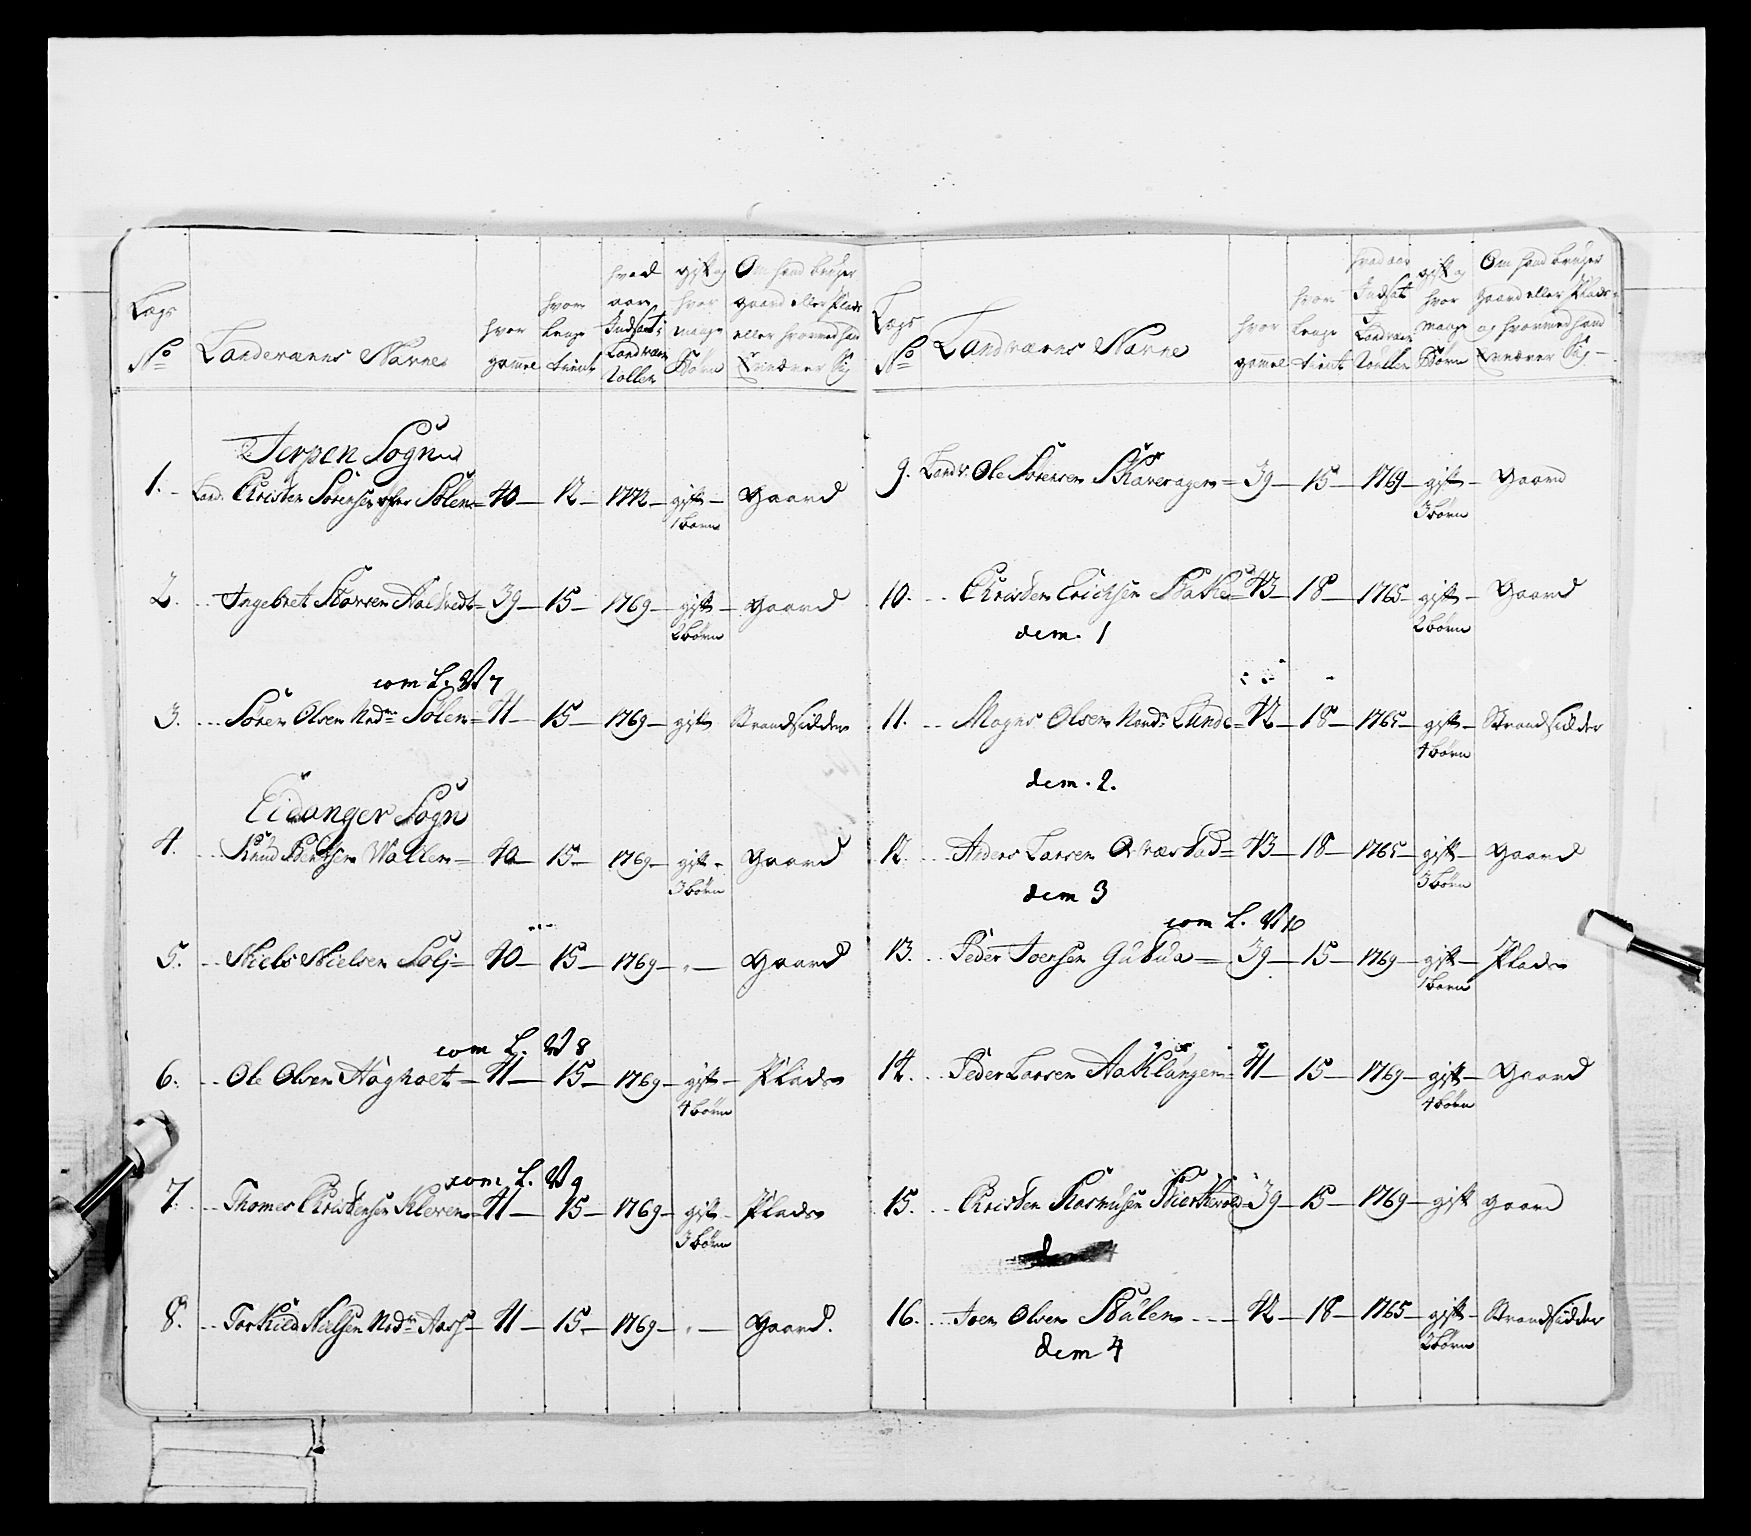 Lægs
No
Landværns Navne
hvor
gamel
hvor
lenge
tient
hvad
aar
Indsat i
Landværn
Rollen
gift og
hvor
mange
Børn
Om hand bruger
gaard eller Plads
eller hvormed han
ernærer Sig
Jerpen Sogn
1. Landv. Christen Sørensen Sølen 40 12 1772 gift Gaard
1 barn
2. Ingebret Larsen 39 15 1769 gift Gaard
2 børn
com L. W 7
3. Søren Olsen Nedre Sølen 41 15 1769 gift Strandsidder
Eidanger Sogn
4. Knud Bentsen Wallen 40 15 1769 gift Gaard
3 børn
5. Niels Nielsen Solj 40 15 1769 Gaard
com L. W 8
6. Ole Olsen Høgholt 41 15 1769 gift Plads
4 børn
com L. W 9
7. Thomes Christensen Kleven 41 15 1769 gift Plads
3 børn
8. Torkild Nielsen Nedre Aass 41 15 1769 Gaard.
Lægs
No
Landværns Navne
hvor
gamel
hvor
lenge
tient
hvad aar
Indsat
i
Landværn
Roullen
gift og
hvor
mange
Børn
Om hand bruger
Gaard eller Plads
og hvormed hand
ernærer Sig
9. Landv. Ole Sørensen Skaveragen 39 15 1769 gift Gaard
3 børn
10. Christen Erichsen 43 18 1765 gift Gaard
2 børn
dem. 1
11. Mogns Olsen Nordre Lunde 42 18 1765 gift Strandsidder
4 børn
dem. 2.
12. Anders Larsen 43 18 1765 gift Gaard
3 børn
dem 3
com L. W 10
13. Peder Joersen 39 15 1769 gift Plads
1 barn
14. Peder Larsen Aaklungen 41 15 1769 gift Gaard
4 børn
15. Christen Rasmusen 39 15 1769 gift gaard
16. Joen Olsen Skålen 42 18 1765 gift Strandsidder
2 børn
dem 4